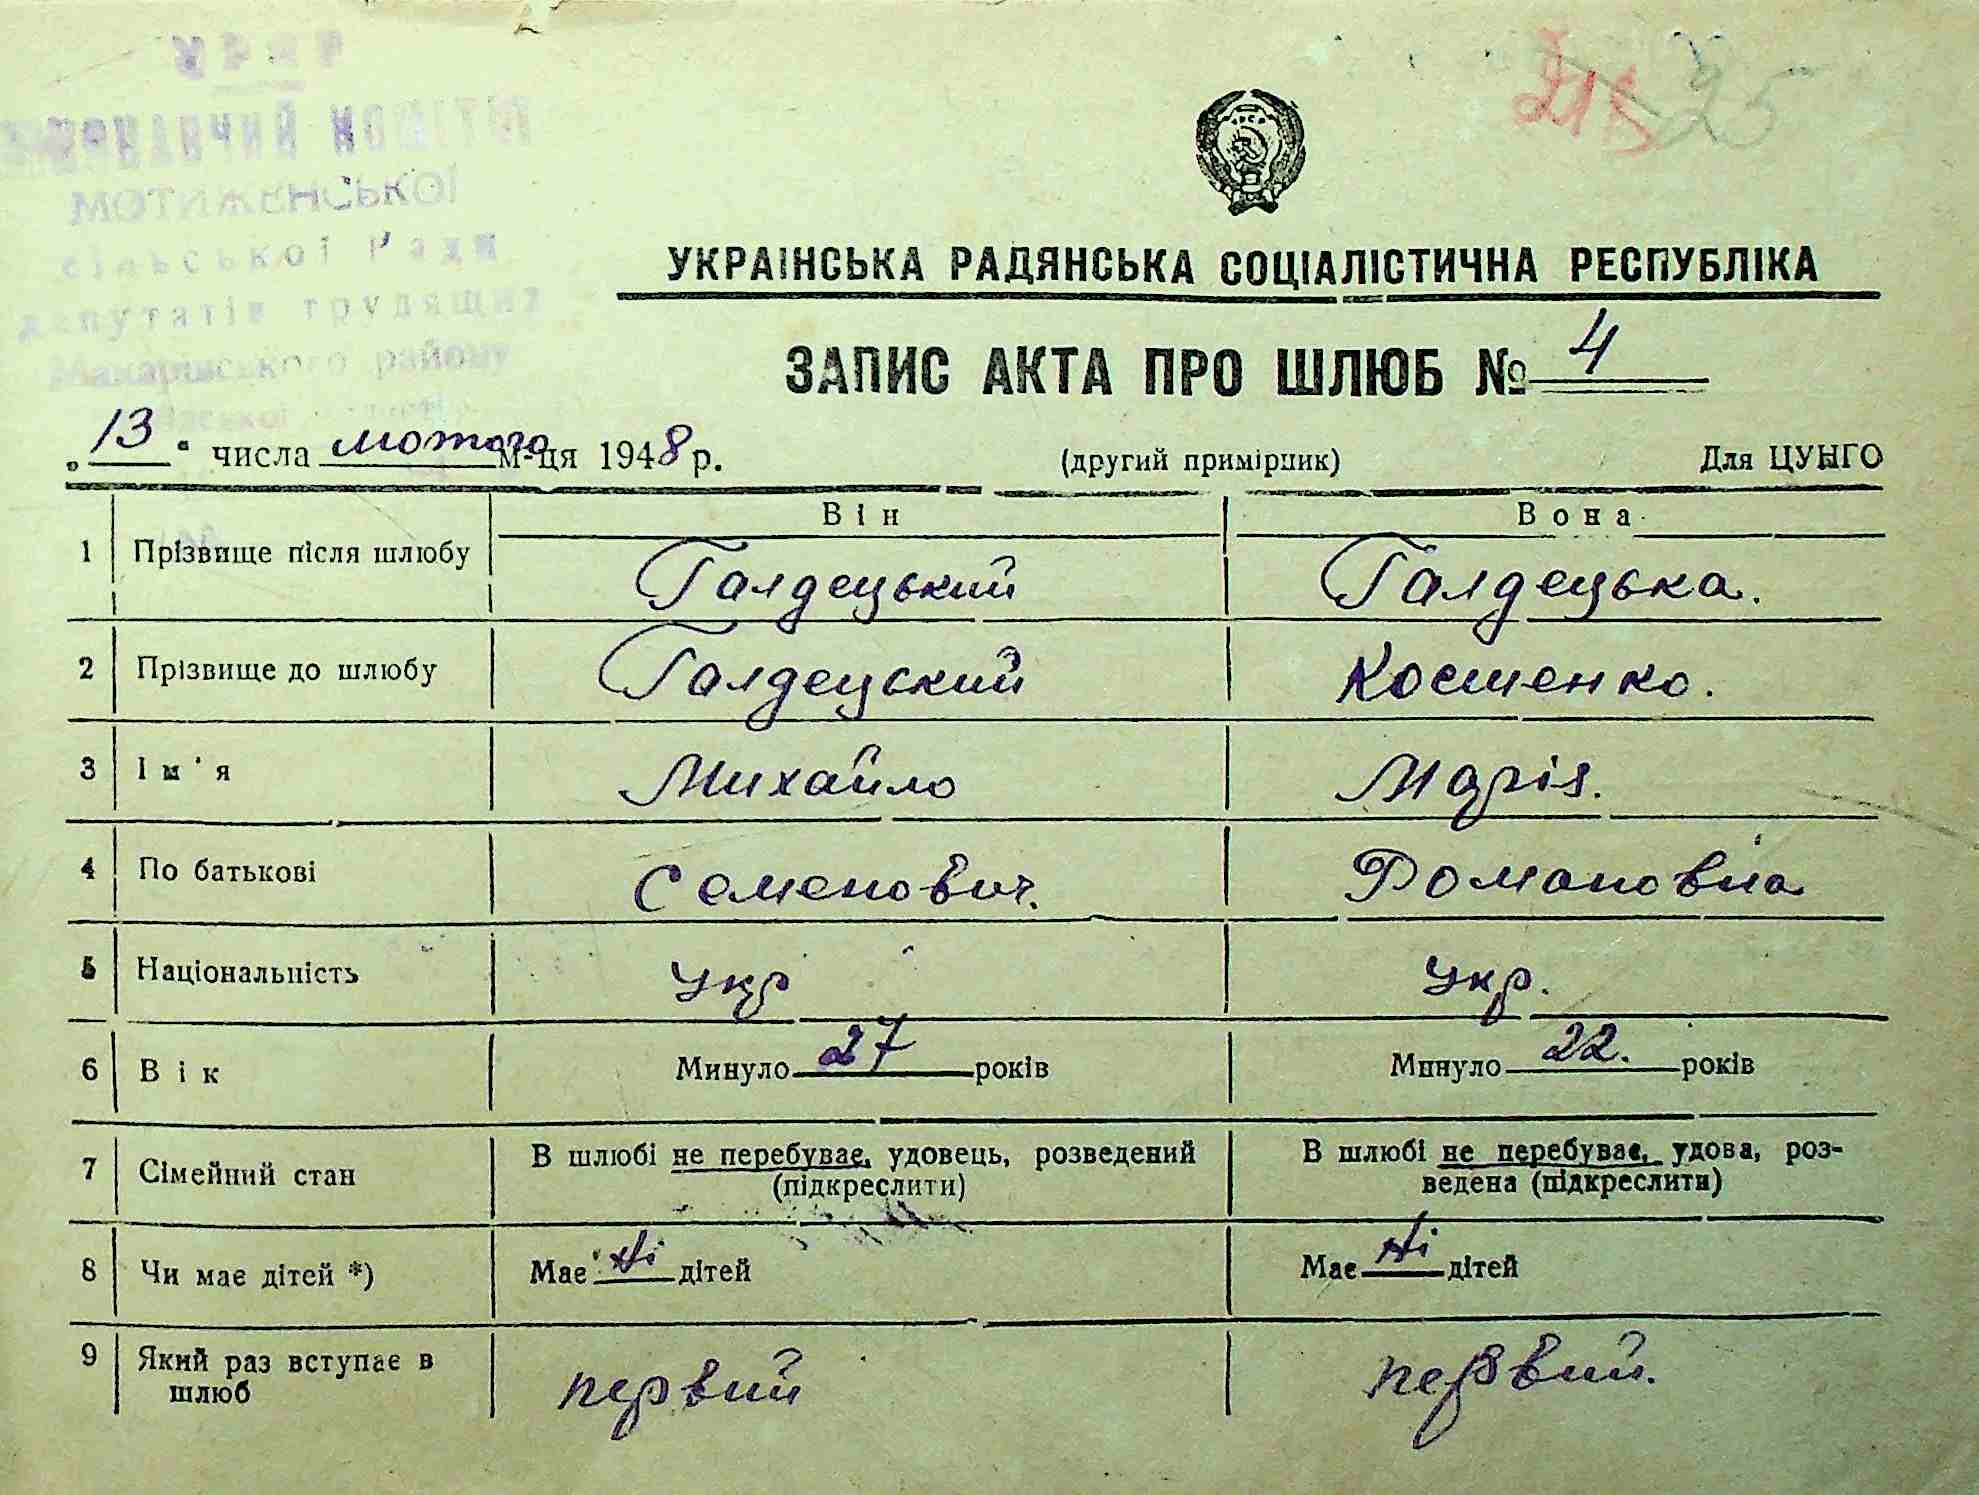 УРСР
ВИКОНАВЧИЙ КОМІТЕТ
МОТИЖЕНСЬКОЇ
сільської Ради
депутатів трудящих
Макарівського району
25
УКРАЇНСЬКА РАДЯНСЬКА СОЦІАЛІСТИЧНА РЕСПУБЛІКА
ЗАПИС АКТА ПРО ШЛЮБ № 4
„13“ числа лютого м-ця 1948 р. (другий примірник) Для ЦУНГО
Він Вона
1 Прізвище після шлюбу Галдецький Галдецька.
2 Прізвище до шлюбу Галдецский Костенко.
3 Ім'я Михайло Марія.
4 По батькові Семенович. Романовна
5 Національність Укр Укр.
6 Вік Минуло 27 років Минуло 22. років
7 Сімейний стан В шлюбі не перебуває, удовець, розведений В шлюбі не перебуває, удова, роз-
(підкреслити) ведена (підкреслити)
8 Чи має дітей *) Має ні дітей Має ні дітей
9 Який раз вступає в шлюб первий первий.